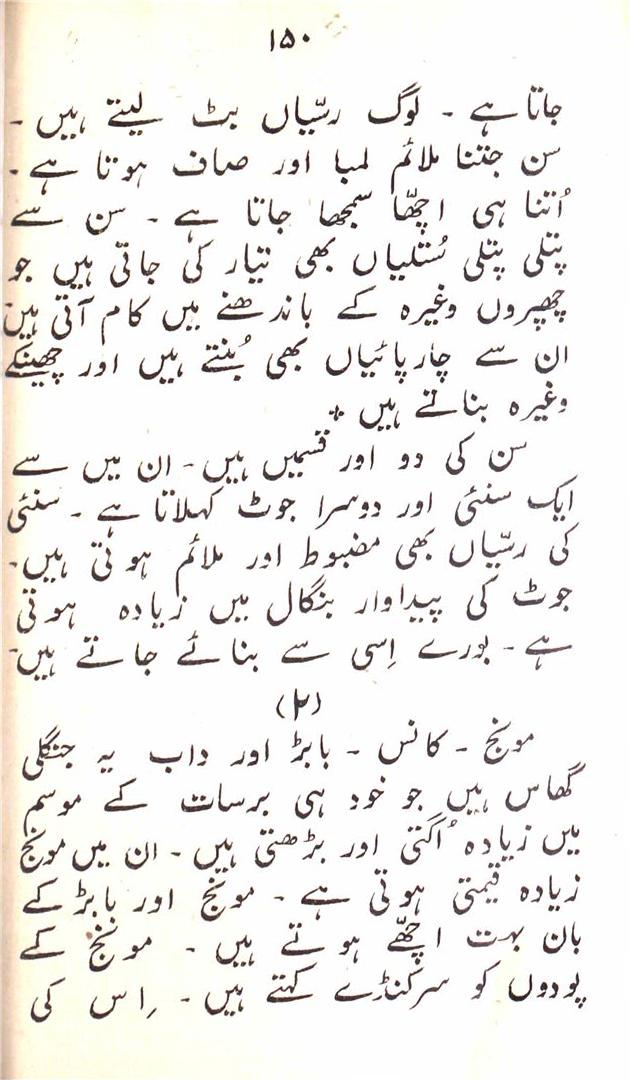 ۱۵۰
جاتا ہے ۔ لوگ رسّیاں بٹ لیتے ہیں ۔
سن جتنا ملائم لمبا اور صاف ہوتا ہے ۔
اُتنا ہی اچھّا سمجھا جاتا ہے ۔ سن سے
پتلی پتلی سُتلیاں بھی تیّار کی جاتی ہیں جو
چھپروں وغیرہ کے باندھنے میں کام آتی ہیں
ان سے چارپائیاں بھی بُنتے ہیں اور چھینکے
وغیرہ بناتے ہیں *
سن کی دو اور قسمیں ہیں ۔ ان میں سے
ایک سنئی اور دوسرا جوٹ کہلاتا ہے ۔ سنئی
کی رسّیاں بھی مضبوط اور ملائم ہوتی ہیں ۔
جوٹ کی پیداوار بنگال میں زیادہ ہوتی
ہے ۔ بورے اِسی سے بنائے جاتے ہیں ۔
(۲)
مونج ۔ کانس ۔ بابڑ اور داب یہ جنگلی
گھاس ہیں جو خود ہی برسات کے موسم
میں زیادہ اُگتی اور بڑھتی ہیں ۔ ان میں مونج
زیادہ قیمتی ہوتی ہے ۔ مونج اور بابڑ کے
بان بہت اچھّے ہوتے ہیں ۔ مونج کے
پودوں کو سرکنڈے کہتے ہیں ۔ اِس کی